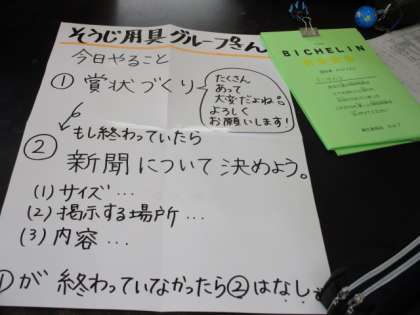 そうじ用具グループさん
今日やること
① 賞状づくり
たくさん
あって
大変だよね。
よろしく
お願いします!
もし終わっていたら
②
新聞について決めよう。
(1) サイズ…
(2) 掲示する場所…
(3) 内容…
①が終わっていなかったら②はなし
BICHELIN